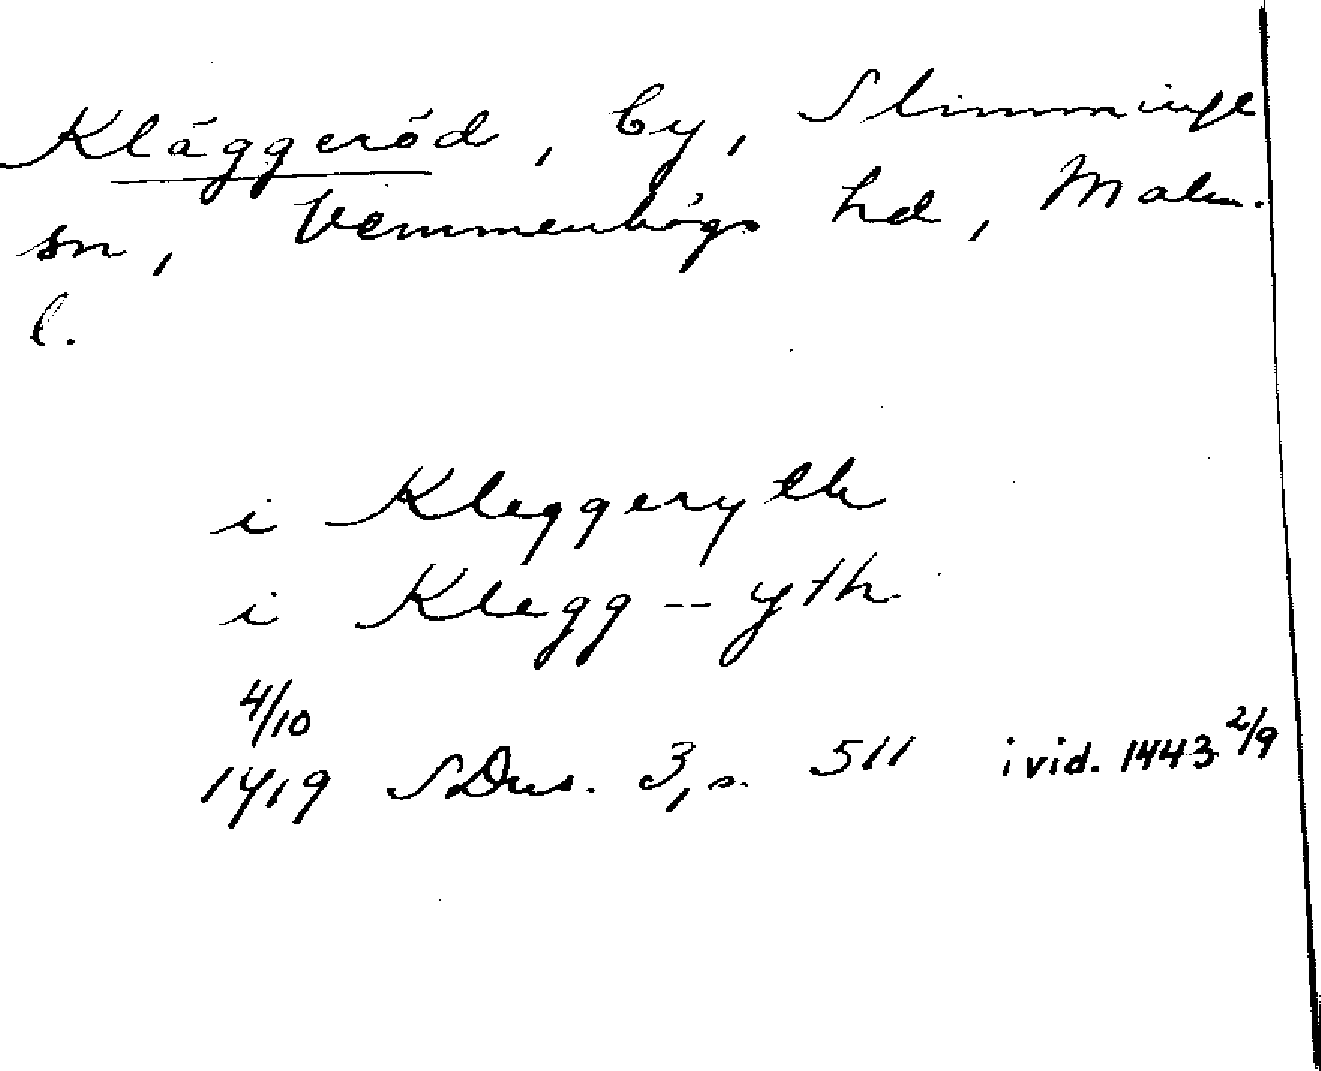 Kläggeröd, by, Slimminge
sn, Vemmenhögs hd, Malm.
l.
i Kleggeryth
i Klegg--yth
4/10
1419 SDns. 3, s. 511 i vid. 1443 2/9